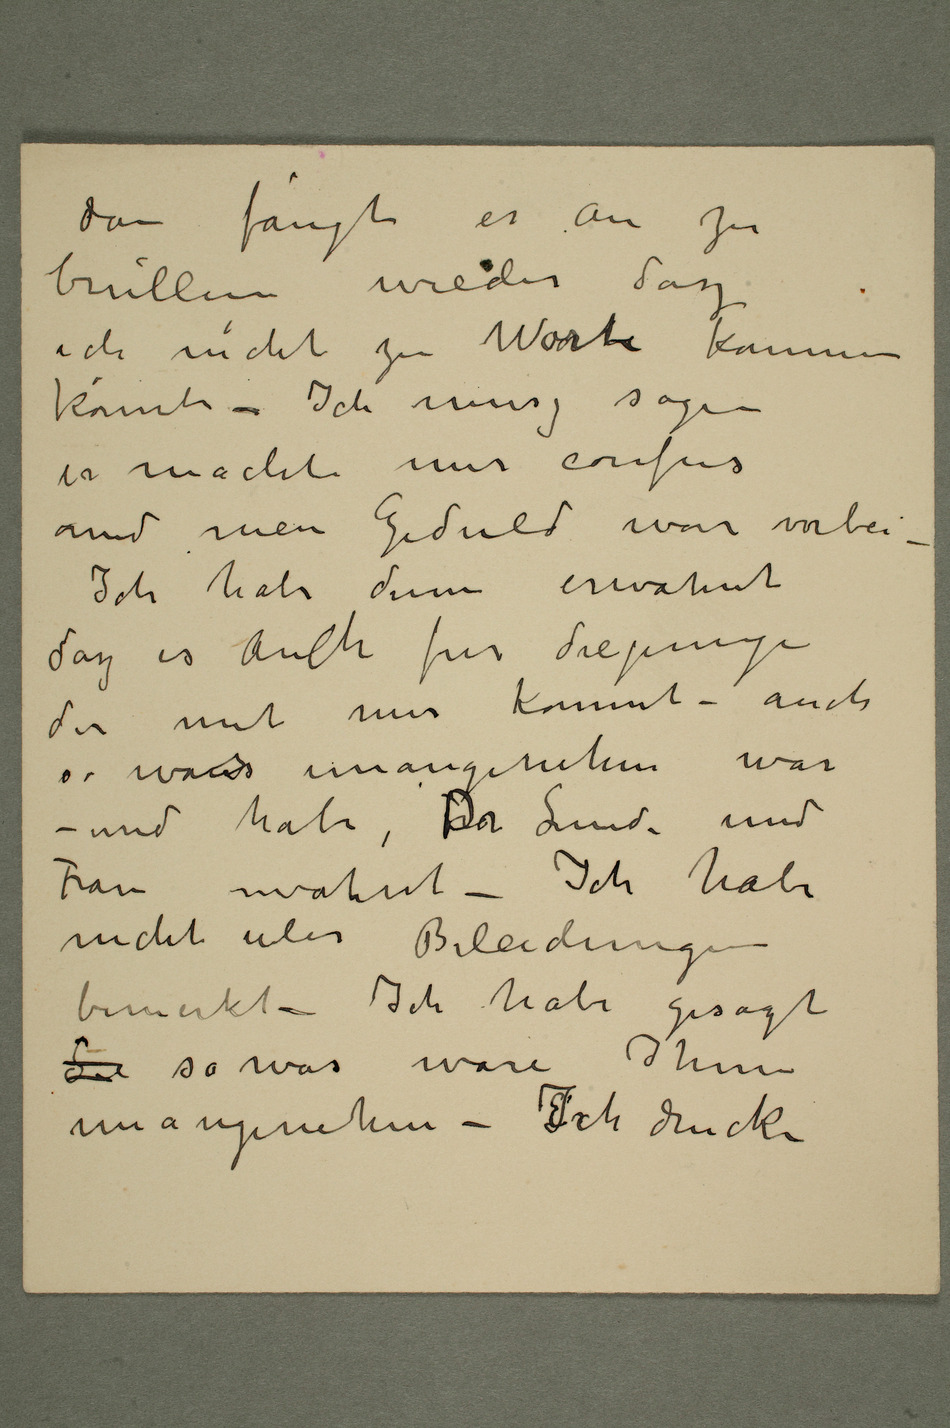 dan fängt er an zu
brüllen wieder dasz
ich nicht zu Worte kommen
könnte – Ich musz sagen
er machte mir confus
und mein Geduld war vorbei –
Ich habe dann erwähnt
dasz es auch für diejenige
der mit mir kommt – auch
so was unangenehm war
– und habe, Dr Linde und
Frau erwähnt – Ich habe
nicht über Beleidungen
bemerkt – Ich habe gesagt
so was wäre Ihnen
unangenehm – Ich drucke